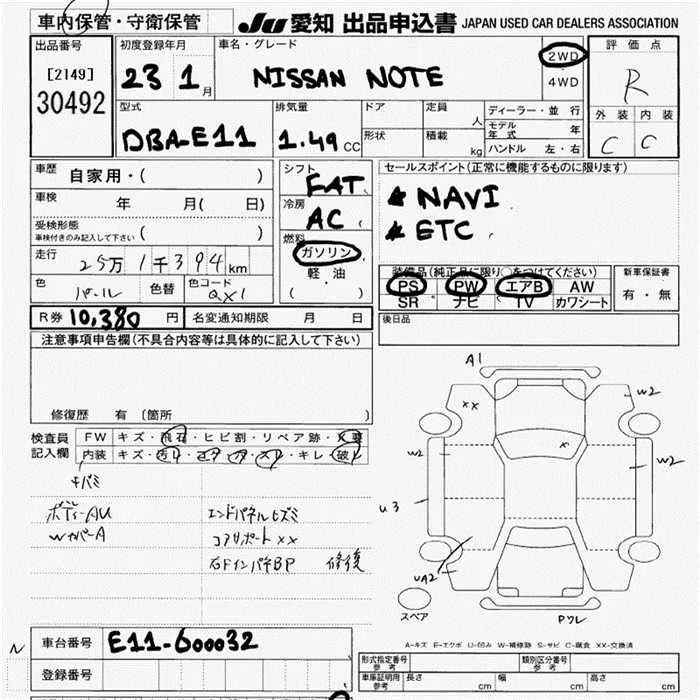 車内保管・守衛保管
JU 愛知 出品申込書 JAPAN USED CAR DEALERS ASSOCIATION
出品番号
[2149]
30492
初度登録年月
23 1 月
車名・グレード
NISSAN NOTE
2WD
4WD
評価点
R
外装 内装
C C
型式
DBA-E11
排気量
1.49 CC
ドア
定員
人
形状
積載
kg
ディーラー・並行
モデル年式 年
ハンドル 左・右
車歴
自家用・( )
車検
年 月( 日)
受検形態
車検付きのみ記入して下さい ( )
走行
25万1千394km
色
パール
色替
色コード
QX1
シフト
FAT
冷房
AC
燃料
ガソリン
軽・油
( )
セールスポイント(正常に機能するものに限ります)
★ NAVI
★ ETC
装備品(純正品に限り○をつけてください)
PS PW エアB AW
SR ナビ TV カワシート
新車保証書
有・無
R券 10,380 円
名変通知期限 月 日
後日品
注意事項申告欄(不具合内容等は具体的に記入して下さい)
修復歴 有 〔箇所 〕
検査員
記入欄
FW キズ・飛石・ヒビ割・リペア跡・X要
内装 キズ・汚れ・コゲ・穴・スレ・キレ・破れ
キバミ
ボディーAU
WカバーA
エンドパネルヒズミ
コアサポートXX
右FインパネBP 修復
A1
XX
W2
X
W2
W2
U3
UA2
スペア
PWレ
A-キズ E-エクボ U-凹み W-補修跡 S-サビ C-腐食 XX-交換済
N
車台番号
E11-600032
登録番号
形式指定番号
参考
類別区分番号
参考
車庫証明用
参考
長さ cm
幅 cm
高さ cm